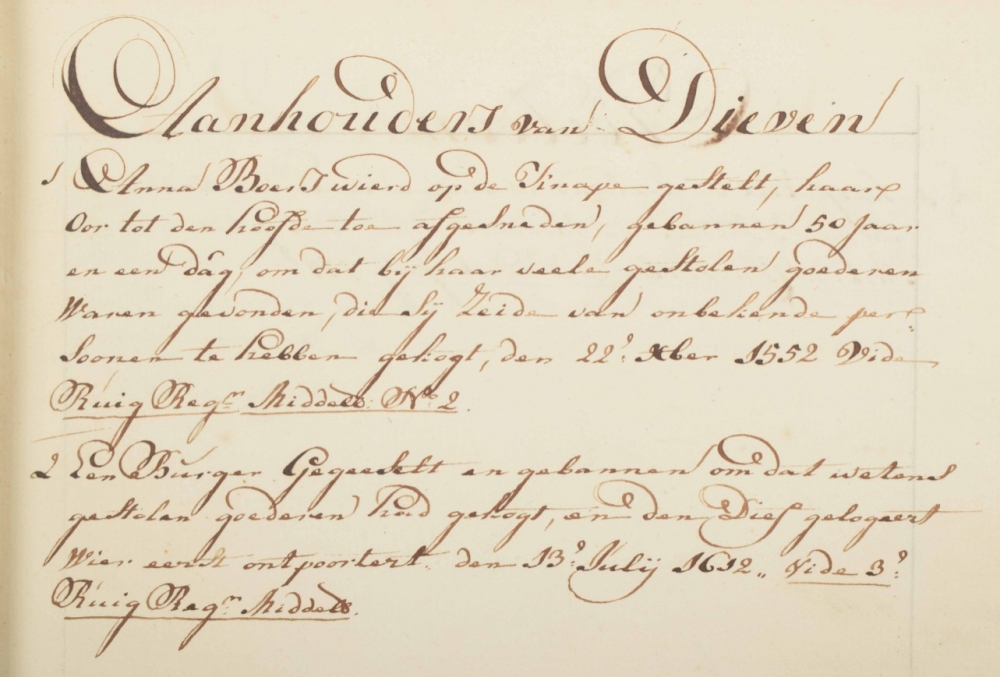 Aanhouders van Dieven
1 Anna Boers wierd op de Kaape gestelt, haar
Oor tot den hoofde toe afgesneden, gebannen 50 Jaar
en een dag, om dat bij haar veele gestolen goederen
Waren gevonden, die sij Zeide van onbekende per
soonen te hebben gekogt, den 22.e Xber 1552 Vide
Ruig Reg.r Middelb. No. 2.
2 Een Burger Gegeeselt en gebannen om dat wetens
gestolen goederen had gekogt, en den Dief gelogeert
Wier eerst ontpoortert. den 13.e Julij 1612 „ Vide 3.e
Ruig Reg.r Middelb.